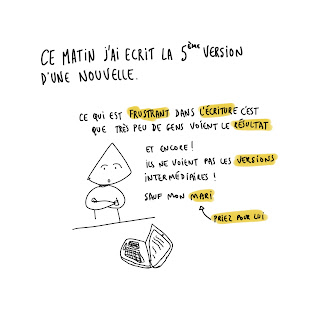 CE MATIN J'AI ECRIT LA 5ème VERSION
D'UNE NOUVELLE.
CE QUI EST FRUSTRANT DANS L'ÉCRITURE C'EST
QUE TRÈS PEU DE GENS VOIENT LE RÉSULTAT
ET ENCORE !
ILS NE VOIENT PAS LES VERSIONS
INTERMÉDIAIRES !
SAUF MON MARI
PRIEZ POUR LUI